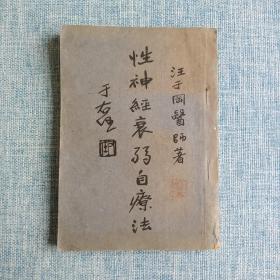 汪于岡醫師著
性神經衰弱自療法
于右任